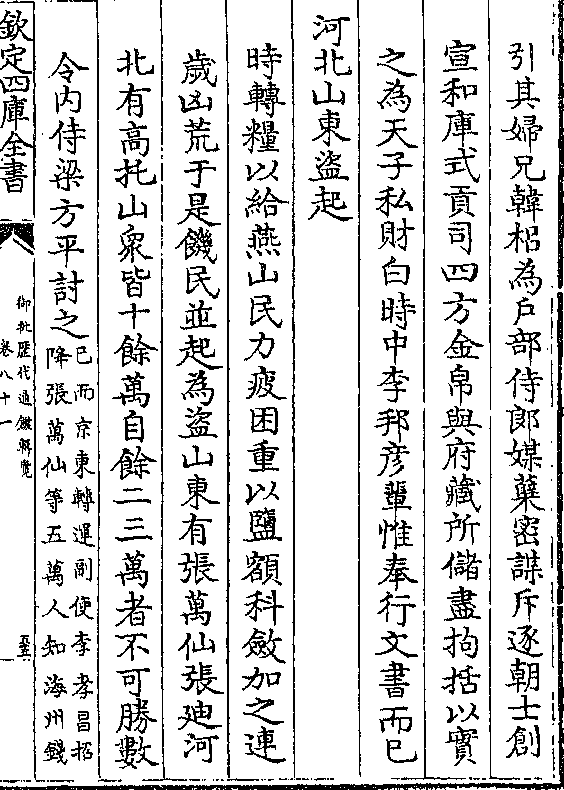 引其婦兄韓梠為戶部侍郎媒蘖密謀斥逐朝士創
宣和庫式貢司四方金帛與府藏所儲盡拘括以實
之為天子私財白時中李邦彥輩惟奉行文書而已
河北山東盜起
時轉糧以給燕山民力疲困重以鹽額科斂加之連
歲凶荒于是饑民並起為盜山東有張萬仙張廸河
北有高托山衆皆十餘萬自餘二三萬者不可勝數
令內侍梁方平討之已而京東轉運副使李孝昌招
降張萬仙等五萬人知海州錢
欽定四庫全書
御批歷代通鑑輯覽
卷八十一